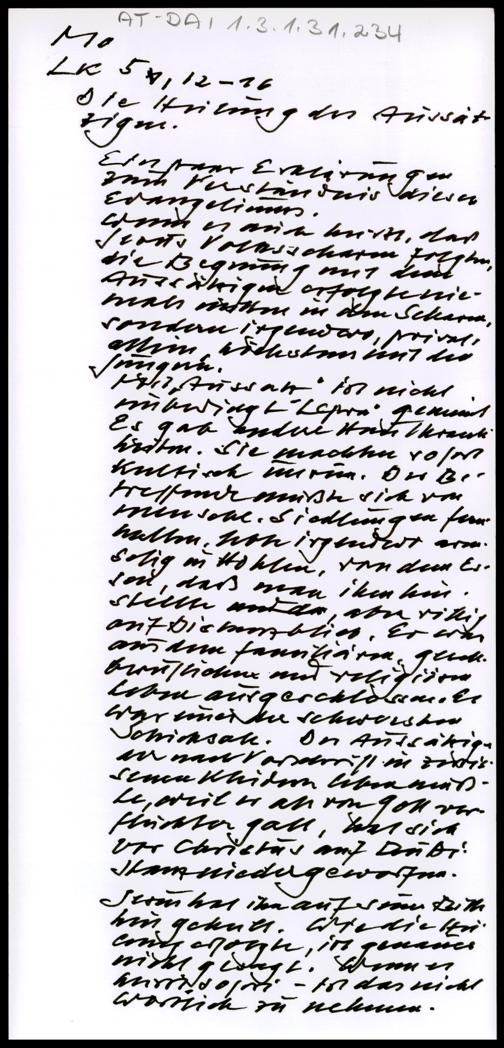 AT-DAI 1.3.1.31.234
Mo
Lk 5, 12-16
Die Heilung des Aussät-
zigen.
Ein paar Erklärungen
zum Verständnis dieses
Evangeliums.
Wenn es auch heisst, daß
Jesus Volksscharen folgten,
die Begegnung mit dem
Aussätzigen erfolgte nie-
mals mitten in den Scharen,
sondern irgendwo, privat
allein, höchstens mit den
Jüngern.
Mit "Aussatz" ist nicht
unbedingt "Lepra" gemeint
Es gab andere Hautkrank-
heiten. Sie machten sofort
kultisch unrein. Der Be-
treffende mußte sich von
menschl. Siedlungen fern-
halten, irgendwo arm-
selig in Höhlen, von dem Es-
sen, daß man ihm hin-
stellte aber völlig
auf Distanz blieb. Er war
aus dem familiären,
beruflichen und religiösen
Leben ausgeschlossen. Es
war eines der schwersten
Schicksale. Der Aussätzige
der nach Vorschrift in zerris-
senen Kleidern leben muß-
te, weil er als von Gott ver-
fluchter galt, hat sich
vor Christus auf Di-
stanz niedergeworfen.
Jesus hat ihn auf seine Bitte
hin geheilt. Wie die Hei-
lung erfolgte, ist genauer
nicht gesagt. Wenn es
heisst sofort - ist das nicht
wörtlich zu nehmen.